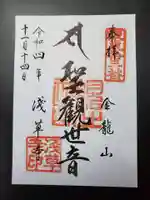 奉拝
金龍山
聖観世音
浅草寺
令和四年
十一月十四日